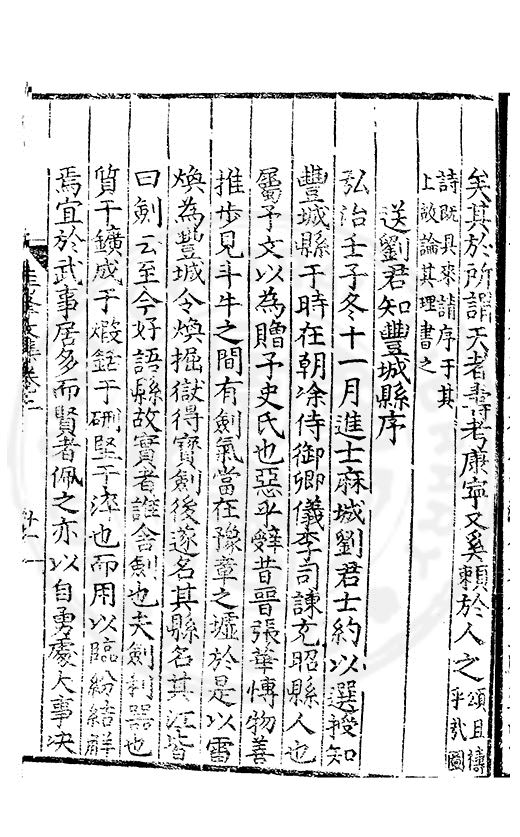 矣其於所謂天者壽考康寧又奚賴於人之頌且禱乎哉圖
詩既具來請序于其
上敢論其理書之
送劉君知豐城縣序
弘治壬子冬十一月進士麻城劉君士約以選授知
豐城縣于時在朝凃侍御卿儀李司諫充昭縣人也
屬予文以為贈予史氏也惡乎辭昔晉張華博物善
推步見斗牛之間有劍氣當在豫章之墟於是以雷
煥為豐城令煥掘獄得寶劍後遂名其縣名其江皆
曰劍云至今好語縣故實者誰舍劍也夫劍利器也
質于鑛成于煅銛于硎堅于淬也而用以臨紛結解
焉宜於武事居多而賢者佩之亦以自勇處大事决